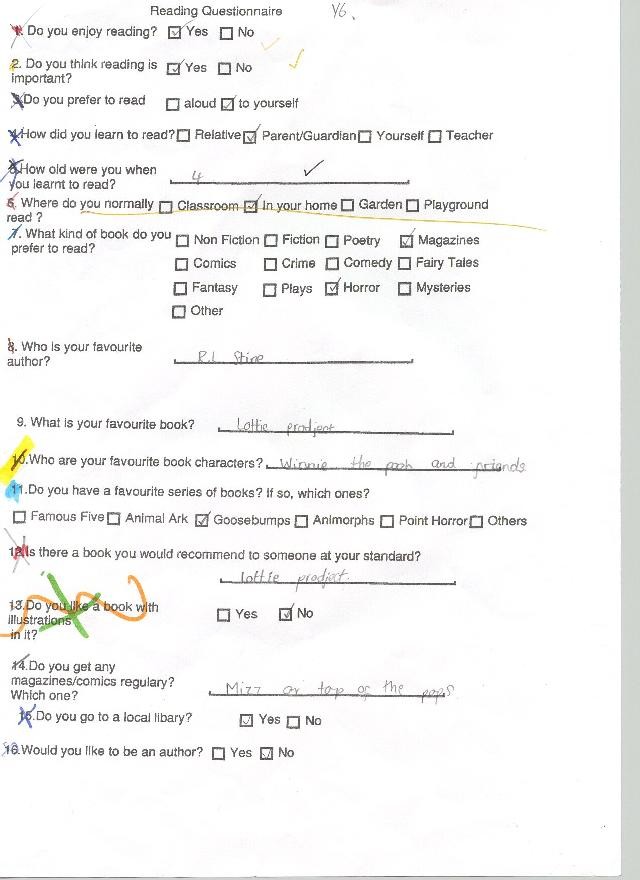 Reading Questionnaire Y6.
1. Do you enjoy reading? Yes No
2. Do you think reading is important? Yes No
3. Do you prefer to read aloud to yourself
4. How did you learn to read? Relative Parent/Guardian Yourself Teacher
5. How old were you when you learnt to read? 4
6. Where do you normally read ? Classroom In your home Garden Playground
7. What kind of book do you prefer to read? Non Fiction Fiction Poetry Magazines
Comics Crime Comedy Fairy Tales
Fantasy Plays Horror Mysteries
Other
8. Who is your favourite author? R.L Stine
9. What is your favourite book? Lottie prodject
10. Who are your favourite book characters? Winnie the pooh and friends
11. Do you have a favourite series of books? If so, which ones?
Famous Five Animal Ark Goosebumps Animorphs Point Horror Others
12. Is there a book you would recommend to someone at your standard?
Lottie prodject.
13. Do you like a book with illustrations in it? Yes No
14. Do you get any magazines/comics regulary? Which one? Mizz or top of the pops
15. Do you go to a local libary? Yes No
16. Would you like to be an author? Yes No